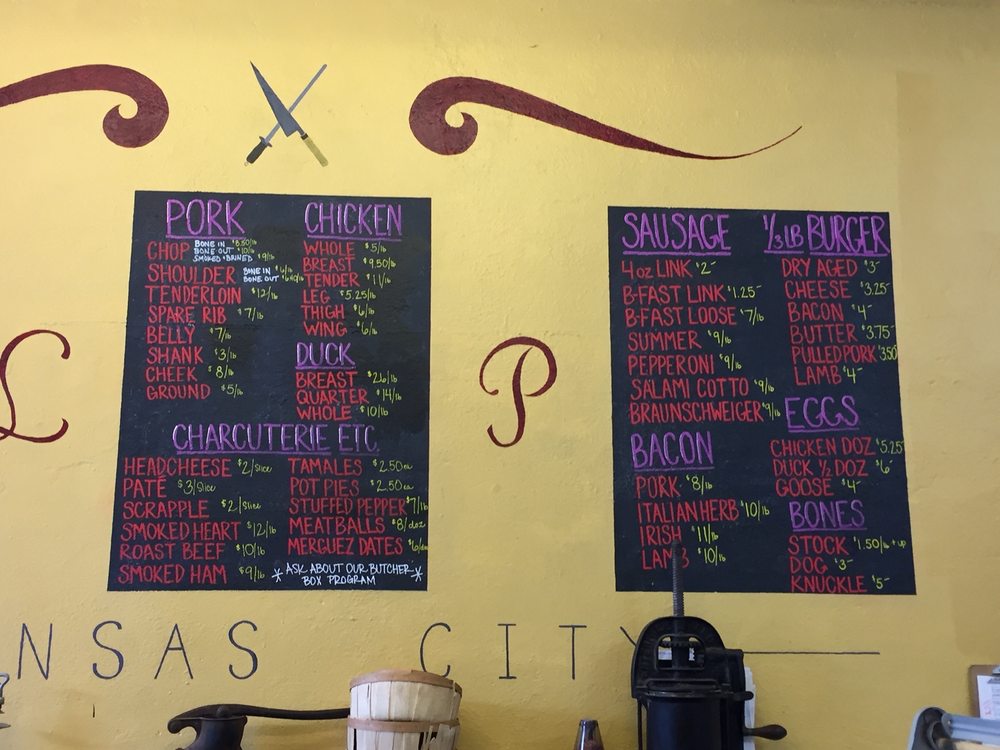 L
P
PORK
CHOP BONE IN $8.50/lb
BONE OUT $10/lb
SMOKED + BRINED $9/lb
SHOULDER BONE IN $6/lb
BONE OUT
TENDERLOIN $12/lb
SPARE RIB $7/lb
BELLY $7/lb
SHANK $3/lb
CHEEK $8/lb
GROUND $5/lb
CHICKEN
WHOLE $5/lb
BREAST $9.50/lb
TENDER $11/lb
LEG $5.25/lb
THIGH $6/lb
WING $6/lb
DUCK
BREAST $26/lb
QUARTER $14/lb
WHOLE $10/lb
CHARCUTERIE ETC.
HEADCHEESE $2/slice
PATÉ $3/slice
SCRAPPLE $2/slice
SMOKED HEART $12/lb
ROAST BEEF $10/lb
SMOKED HAM $9/lb
TAMALES $2.50ea
POT PIES $2.50ea
STUFFED PEPPER $7/lb
MEATBALLS $8/doz
MERGUEZ DATES
*ASK ABOUT OUR BUTCHER*
BOX PROGRAM
SAUSAGE
4 oz LINK $2-
B-FAST LINK $1.25-
B-FAST LOOSE $7/lb
SUMMER $9/lb
PEPPERONI $9/lb
SALAMI COTTO $9/lb
BRAUNSCHWEIGER $9/lb
BACON
PORK $8/lb
ITALIAN HERB $10/lb
IRISH $11/lb
LAMB $10/lb
1/3 LB BURGER
DRY AGED $3-
CHEESE $3.25
BACON $4-
BUTTER $3.75
PULLED PORK $3.50
LAMB $4-
EGGS
CHICKEN DOZ $5.25
DUCK ½ DOZ $6-
GOOSE $4-
BONES
STOCK $1.50/lb + up
DOG $3-
KNUCKLE $5-
NSAS CITY